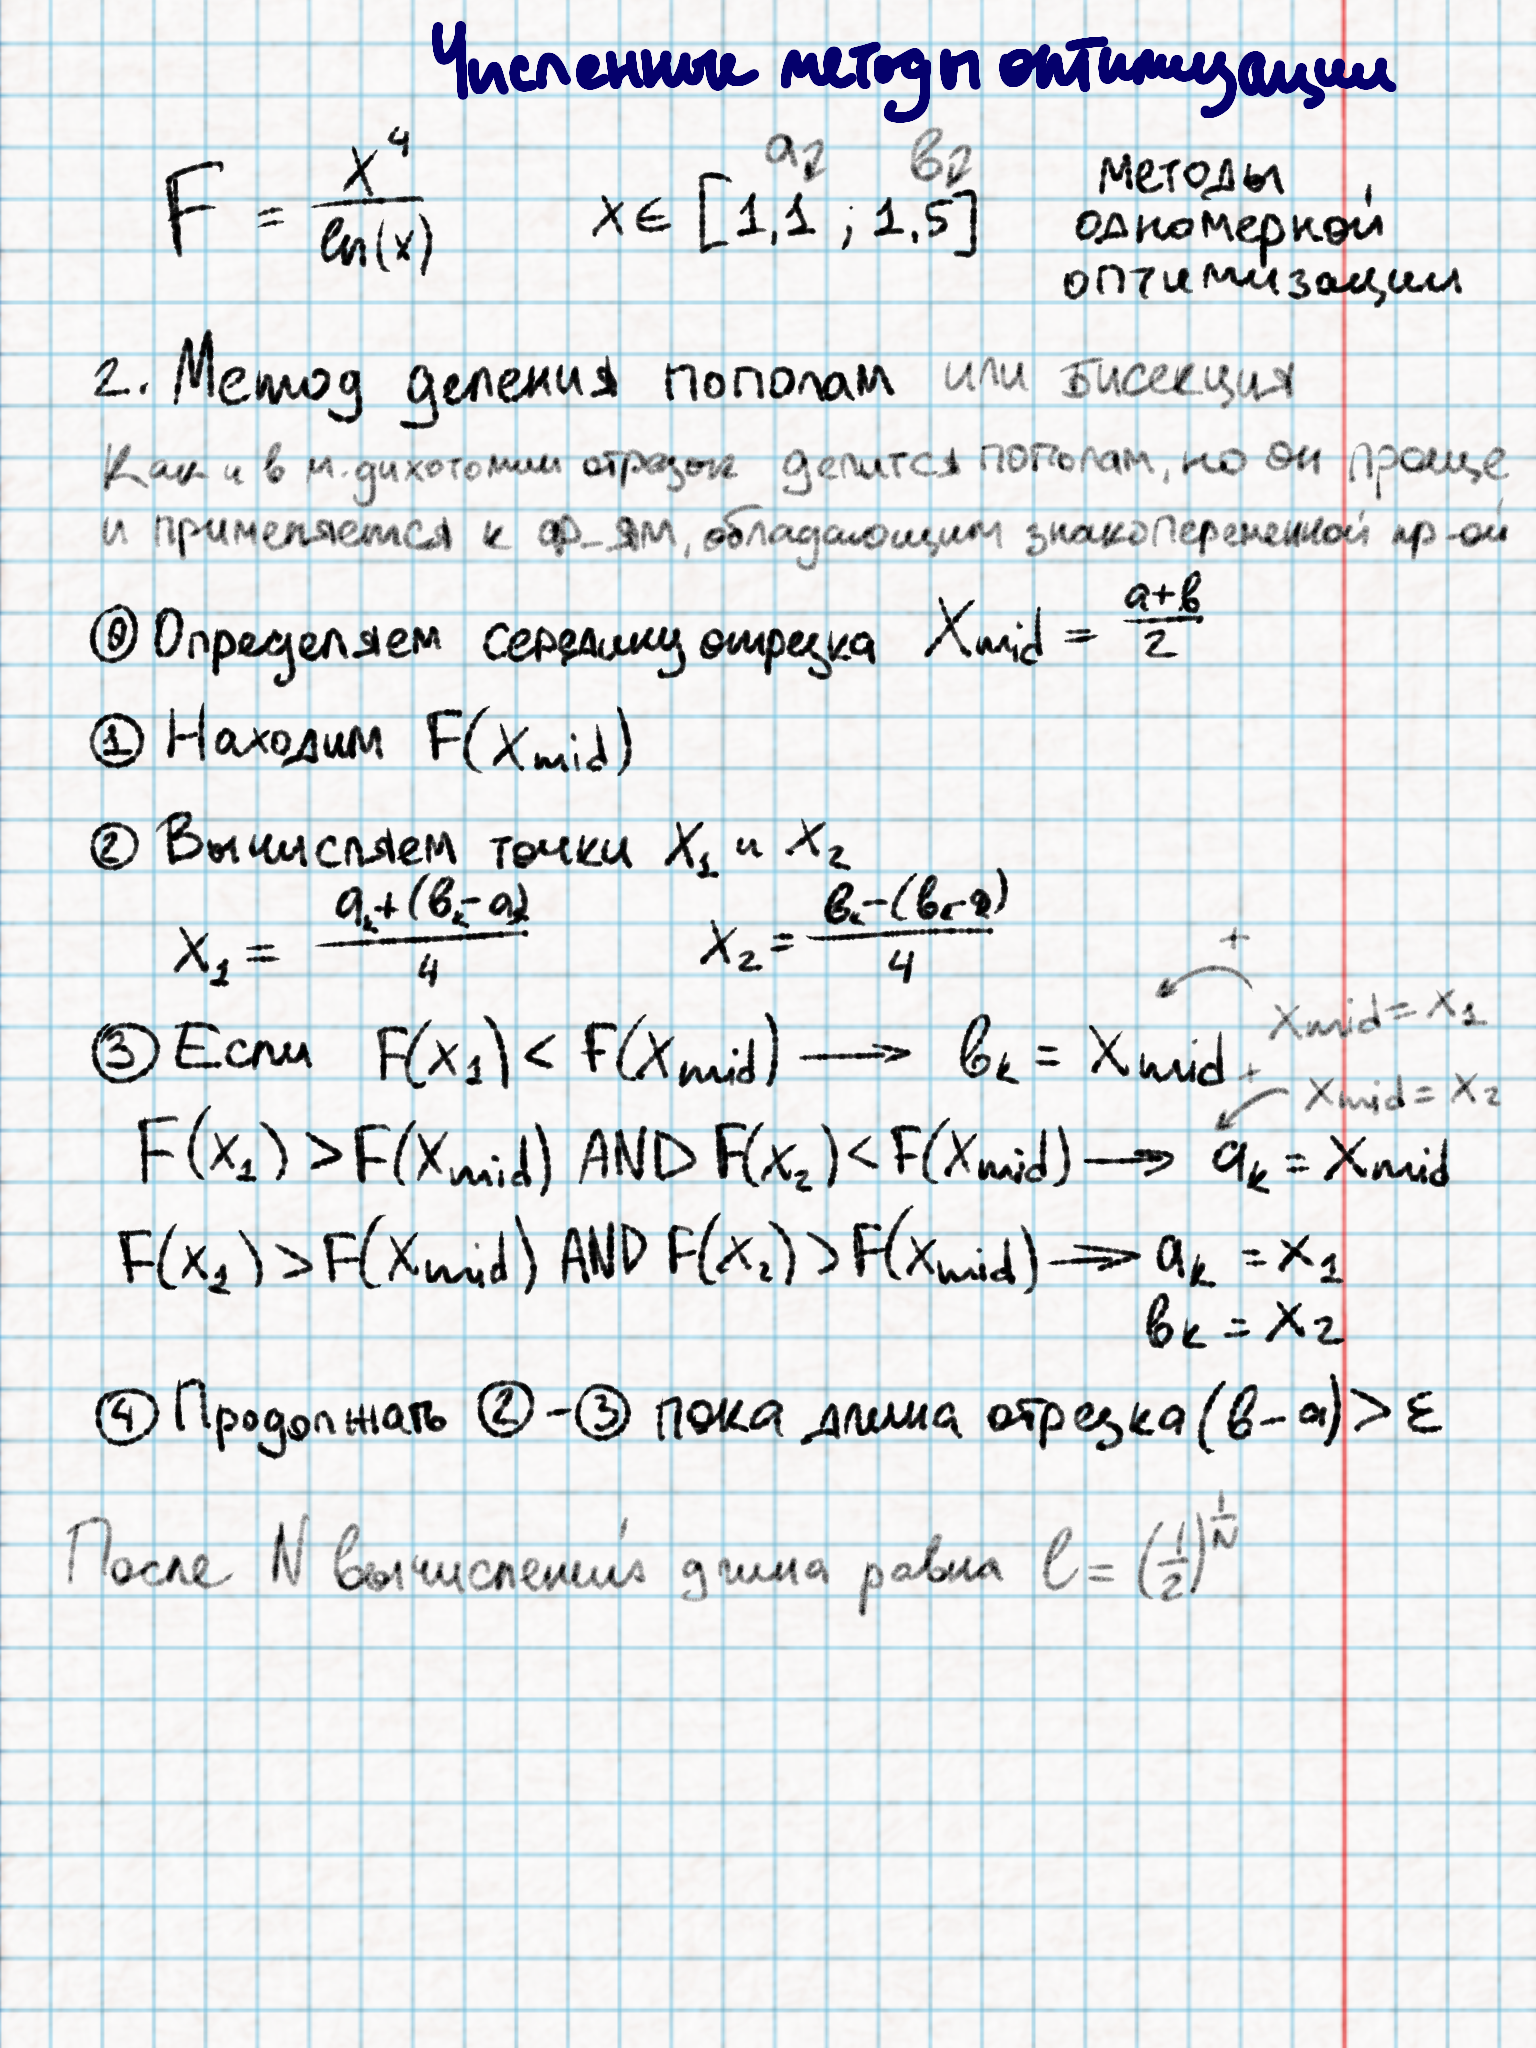 Численные методы оптимизации
F = x⁴/ln(x) x ∈ [1,1 ; 1,5] a↓ b↓
методы
одномерной
оптимизации
2. Метод деления пополам или бисекция
Как и в м. дихотомии отрезок делится пополам, но он проще
и применяется к ф-ям, обладающим знакопеременной пр-ой
⓪ Определяем середину отрезка Xmid = (a+b)/2
① Находим F(Xmid)
② Вычисляем точки X₁ и X₂
X₁ = (aₖ+(bₖ-a))/4 X₂ = (bₖ-(bₖ-a))/4
+ Xmid = X₁
③ Если F(X₁) < F(Xmid) → bₖ = Xmid
+ Xmid = X₂
F(X₁) > F(Xmid) AND F(X₂) < F(Xmid) → aₖ = Xmid
F(X₁) > F(Xmid) AND F(X₂) > F(Xmid) → aₖ = X₁
bₖ = X₂
④ Продолжать ②-③ пока длина отрезка (b-a) > ε
После N вычислений длина равна l = (1/2)^(1/N)